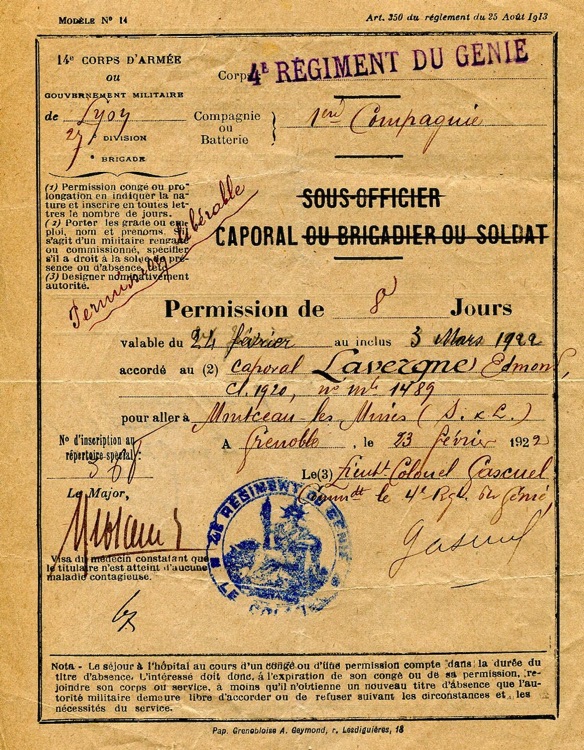 MODÈLE N° 14
Art. 350 du règlement du 25 Août 1913
14e CORPS D'ARMÉE
OU
GOUVERNEMENT MILITAIRE
de Lyon
27e DIVISION
e BRIGADE
Corps
4E RÉGIMENT DU GÉNIE
Compagnie
ou
Batterie
1ère Compagnie
(1) Permission congé ou pro-
longation en indiquer la na-
ture et inscrire en toutes let-
tres le nombre de jours.
(2) Porter les grade ou em-
ploi, nom et prénoms. S'il
s'agit d'un militaire rengagé
ou commissionné, spécifier
s'il a droit à la solde de pré-
sence ou d'absence, etc.
(3) Designer nominativement
autorité.
Permission libérable
SOUS-OFFICIER
CAPORAL OU BRIGADIER OU SOLDAT
Permission de 8 Jours
valable du 24 février au inclus 3 Mars 1922
accordé au (2) caporal Lavergne Edmond,
cl. 1920, no mle 1489
pour aller à Montceau-les-Mines (S. & L.)
N° d'inscription au
répertoire spécial :
A Grenoble, le 23 février 1922
Le(3) Lieutt Colonel Gascuel
Commdt le 4e Rgt du Génie
Le Major,
Gascuel
4E RÉGIMENT DU GÉNIE
LE COLONEL
Visa du médecin constatant que
le titulaire n'est atteint d'aucune
maladie contagieuse.
Nota - Le séjour à l'hôpital au cours d'un congé ou d'une permission compte dans la durée du
titre d'absence. L'intéressé doit donc, à l'expiration de son congé ou de sa permission, re-
joindre son corps ou service, à moins qu'il n'obtienne un nouveau titre d'absence que l'au-
torité militaire demeure libre d'accorder ou de refuser suivant les circonstances et les
nécessités du service.
Pap. Grenobloise A. Geymond, r. Lesdiguières, 18